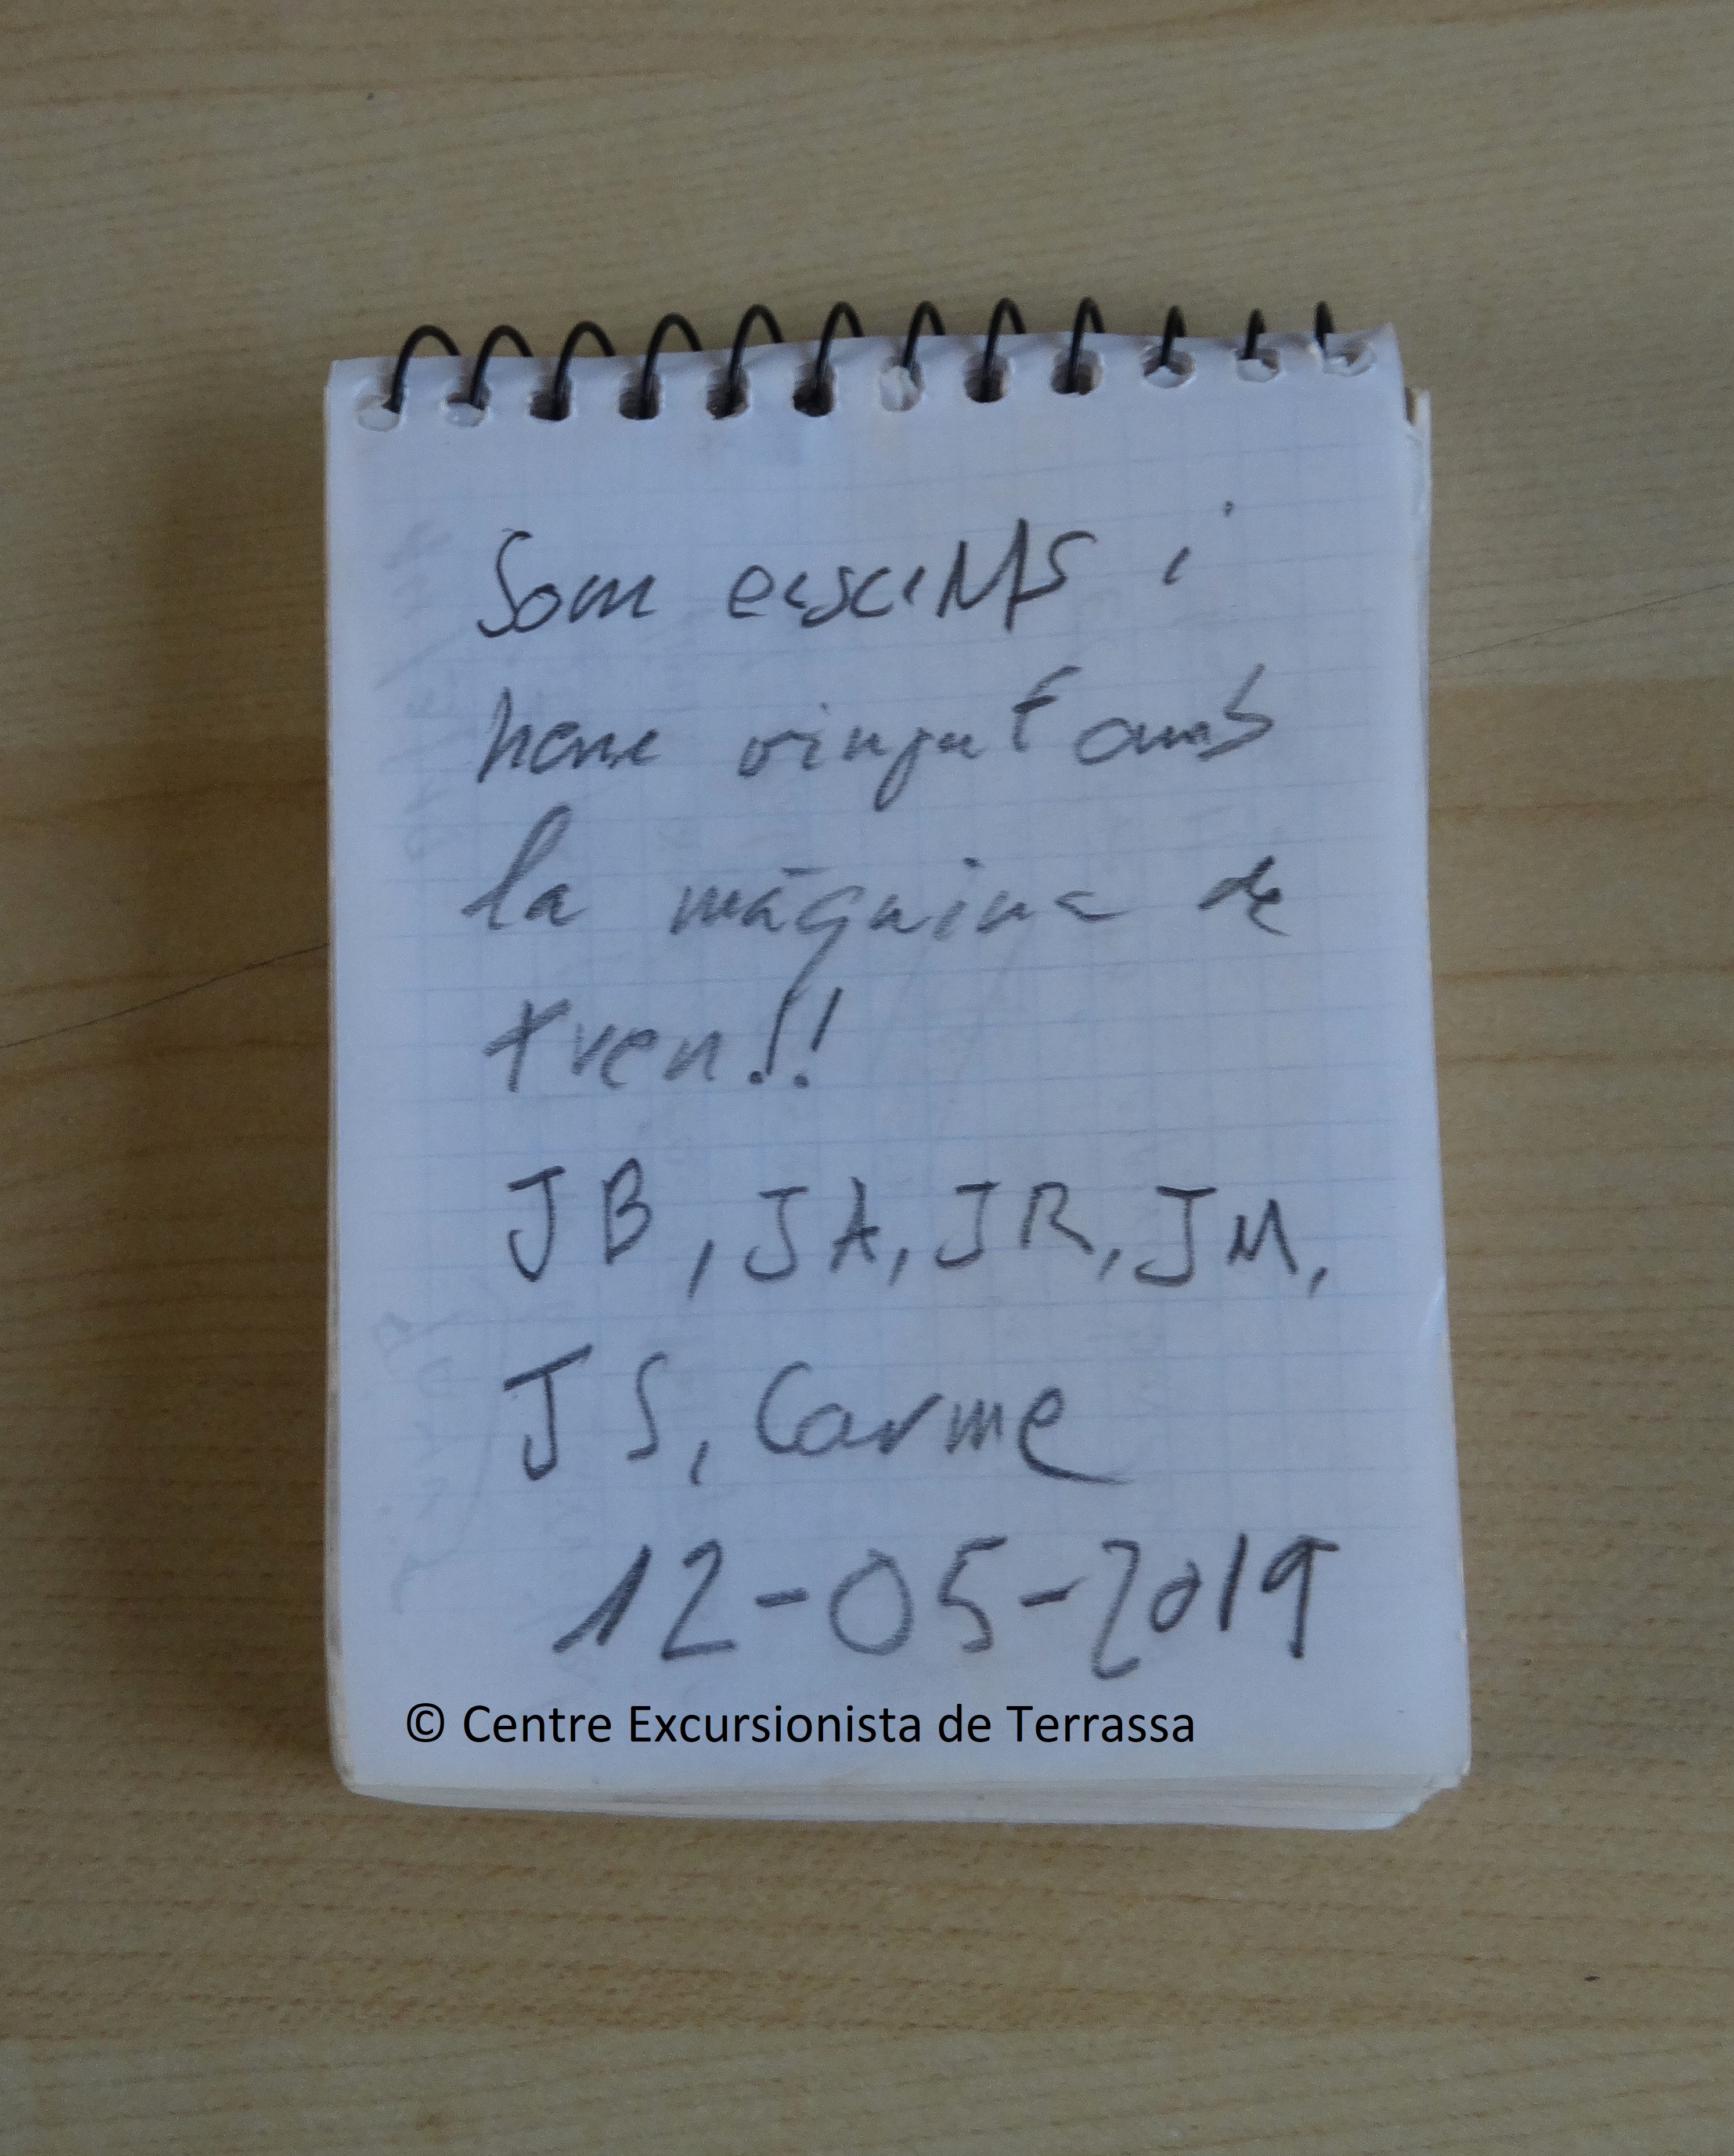 Som i
hem vingut amb
la màquina de
tren!!
JB, JA, JR, JM,
JS, Carme
12-05-2019
© Centre Excursionista de Terrassa